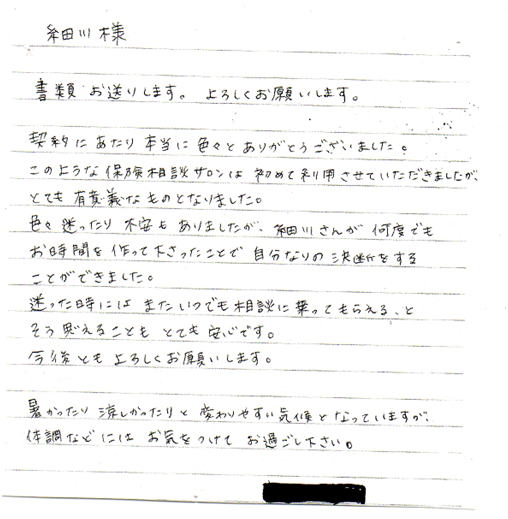 細川様
書類お送りします。よろしくお願いします。
契約にあたり本当に色々とありがとうございました。
このような保険相談サロンは初めて利用させていただきましたが、
とても有意義なものとなりました。
色々迷ったり不安もありましたが、細川さんが何度でも
お時間を作って下さったことで自分なりの決断をする
ことができました。
迷った時にはまたいつでも相談に乗ってもらえる、と
そう思えることもとても安心です。
今後ともよろしくお願いします。
暑かったり涼しかったりと変わりやすい気候となっていますが、
体調などにはお気をつけてお過ごし下さい。